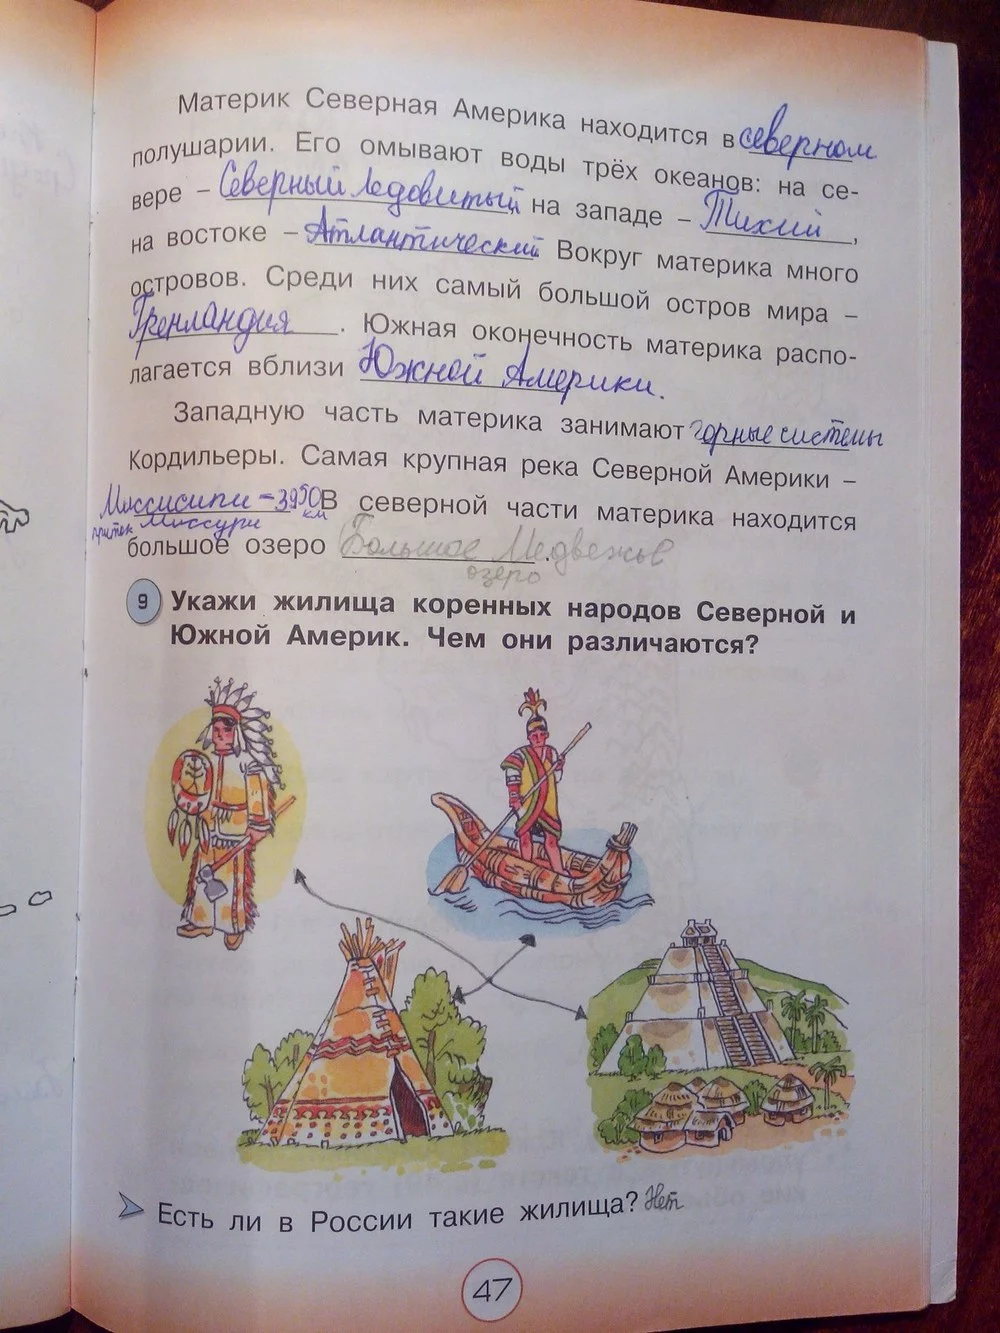 Материк Северная Америка находится в северном
полушарии. Его омывают воды трёх океанов: на се-
вере – Северный Ледовитый на западе – Тихий,
на востоке – Атлантический Вокруг материка много
островов. Среди них самый большой остров мира –
Гренландия. Южная оконечность материка распо-
лагается вблизи Южной Америки.
Западную часть материка занимают горные системы
Кордильеры. Самая крупная река Северной Америки –
Миссисипи – 3950 км В северной части материка находится
приток Миссури
большое озеро Большое Медвежье.
озеро
9 Укажи жилища коренных народов Северной и
Южной Америк. Чем они различаются?
Есть ли в России такие жилища? Нет
47